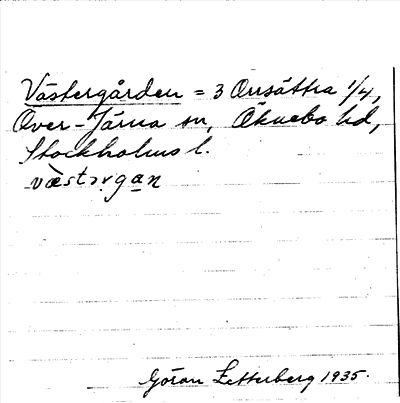 Västergården = 3 Onsättra 1/4,
Över-Järna sn, Öknebo hd,
Stockholms l.
væ̀stərgan
Göran Zetterberg 1935.